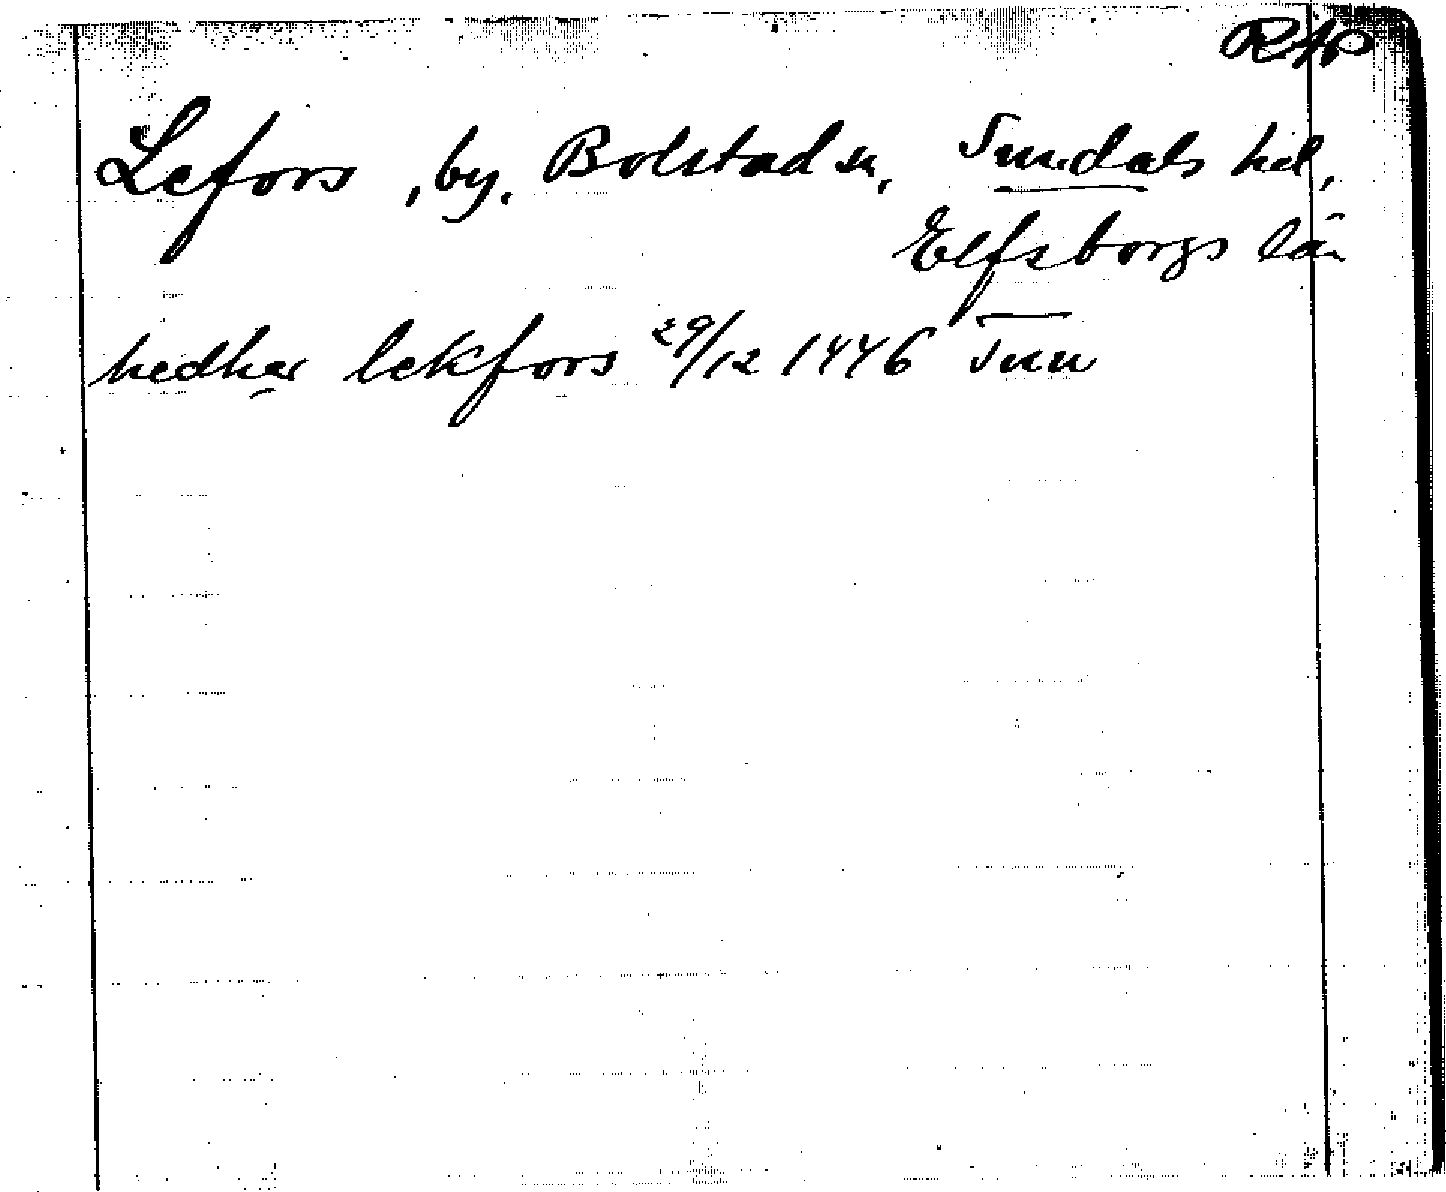 RAP
Lefors, by. Bolstad sn, Sundals hd,
Elfsborgs län
nedhar lekfors 29/12 1446 Sun